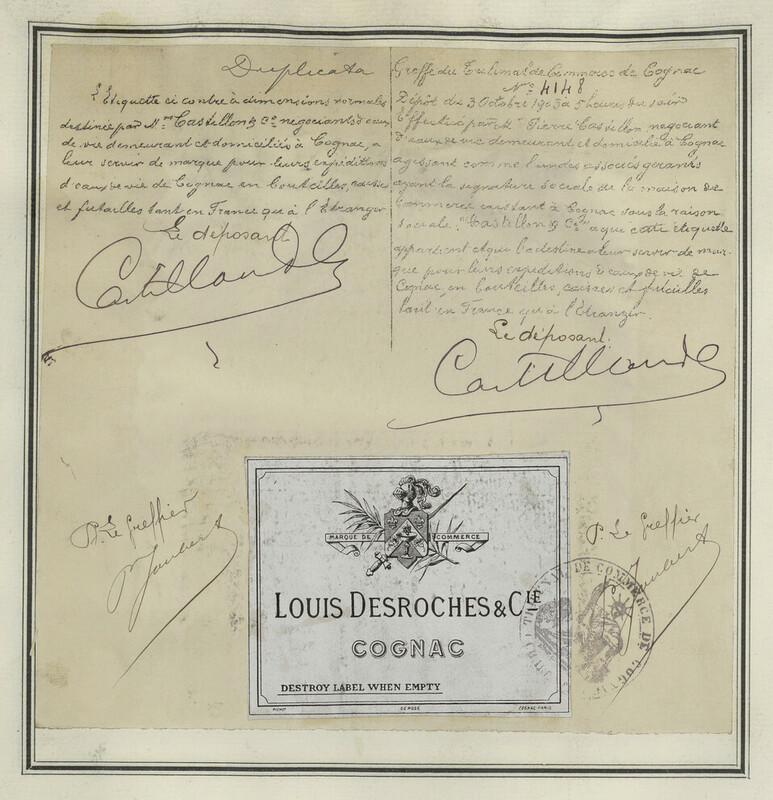 Duplicata
L'Etiquette ci contre à dimensions normales
destinée par Mrs Castillon & Co negociants d'eaux
de vie demeurant et domiciliés à Cognac, a
leur servir de marque pour leurs expéditions
d'eaux de vie de Cognac en bouteilles, caisses
et futailles tant en France qu'à l'Etranger
Le déposant
Greffe du Tribunal de Commerce de Cognac
No 4148
Dépôt du 3 Octobre 1903 à 5 heures du soir
Effectué par Mr Pierre Castillon, negociant
d'eaux de vie demeurant et domicilié à Cognac
agissant comme l'un des associés gérants
ayant la signature sociale de la maison de
Commerce existant à Cognac sous la raison
sociale: Castillon & Cie a qui cette étiquette
appartient et qui la destine a leur servir de mar-
que pour leurs expéditions d'eaux de vie de
Cognac, en bouteilles, caisses et futailles
tant en France qu'à l'Etranger.
Le déposant.
P. Le Greffier
Joubert
P. Le Greffier
Joubert
MARQUE DE COMMERCE
LOUIS DESROCHES & CIE
COGNAC
DESTROY LABEL WHEN EMPTY
DEPOSE
COGNAC-PARIS
DE COMMERCE DE COGNAC